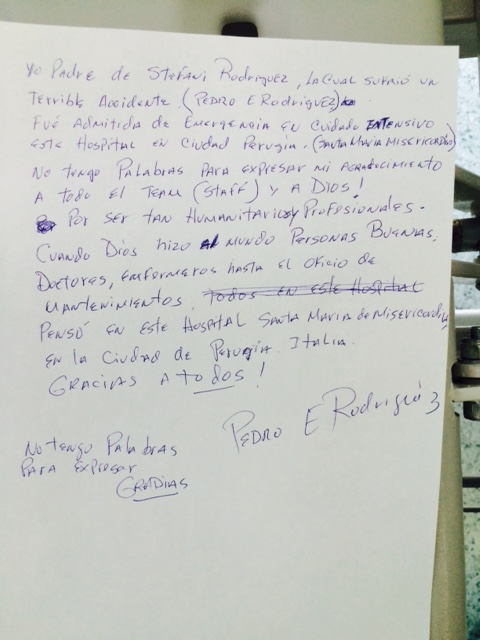 Yo Padre de Stefani Rodriguez, la cual sufrió un
Terrible Accidente. (Pedro E Rodriguez)
Fué Admitida de Emergencia en Cuidado Extensivo
Este Hospital en Ciudad Perugia. (Santa Maria Misericordia)
No tengo Palabras para expresar mi agradecimiento
A todo el Team (Staff) y a Dios!
Por ser tan Humanitarios y Profesionales.
Cuando Dios hizo al mundo Personas Buenas.
Doctores, Emfermeros hasta el oficio de
Mantenimientos. Todos en este Hospital
Pensó en este Hospital Santa Maria de Misericordia
en la Ciudad de Perugia Italia.
Gracias A todos!
Pedro E Rodriguez
No tengo Palabras
Para expresar
Gracias